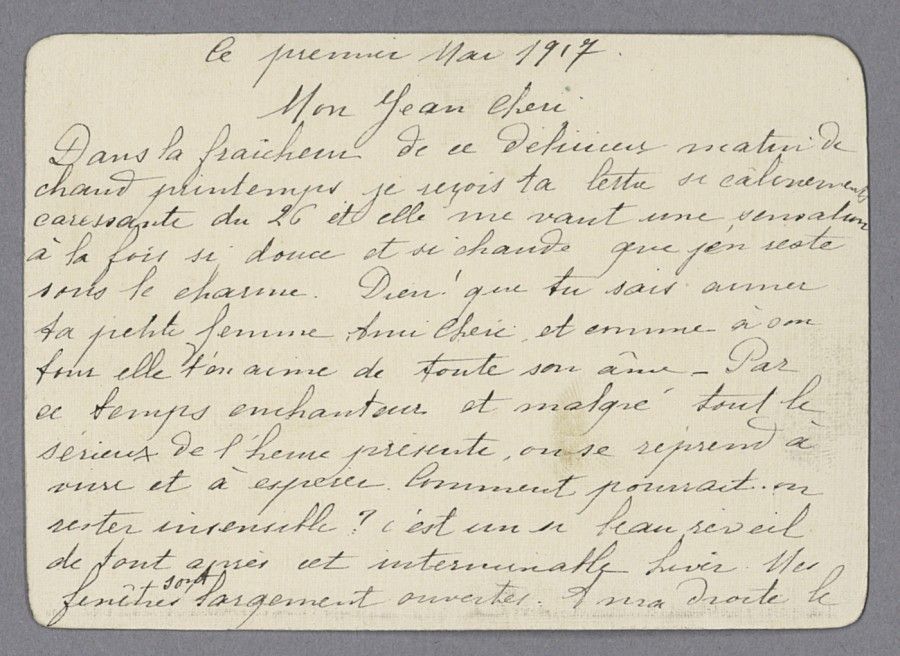 Le premier Mai 1917.
Mon Jean Cheri
Dans la fraîcheur de ce délicieux matin de
chaud printemps je reçois ta lettre si calinement
caressante du 26 et elle me vaut une sensation
à la fois si douce et si chaude que j'en reste
sous le charme. Dieu! que tu sais aimer
ta petite femme Ami Cheri, et comme à son
tour elle t'en aime de toute son âme - Par
ce temps enchanteur et malgré tout le
sérieux de l'heure présente, on se reprend à
vivre et à espérer. Comment pourrait-on
rester insensible? C'est un si beau réveil
de tout après cet interminable hiver. Mes
fenêtres sont largement ouvertes. A ma droite le